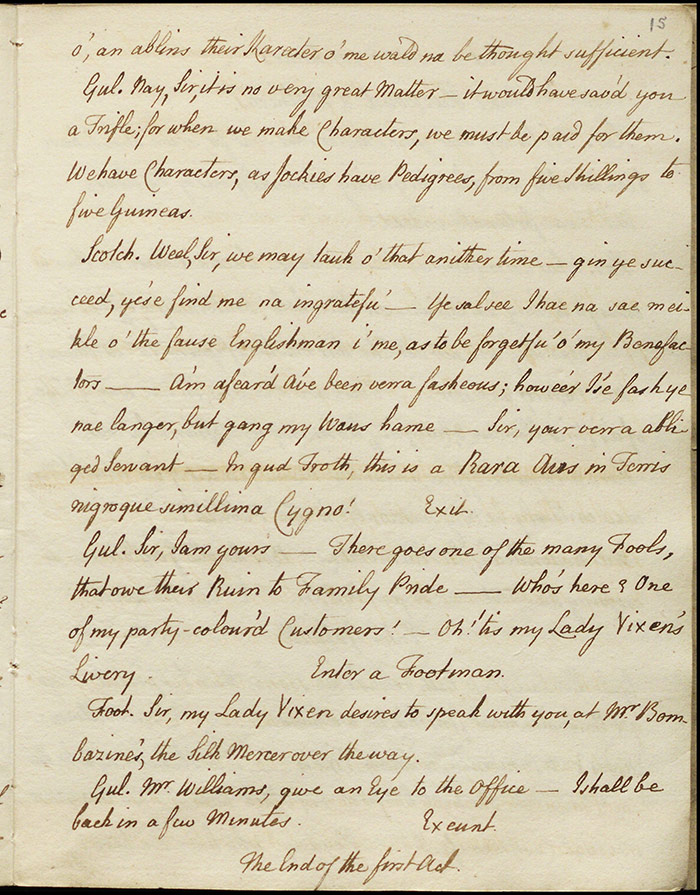 15
o', an ablins their Karacter o' me wald na be thought sufficient.
Gul. Nay, Sir, it is no very great Matter — it would have sav'd you
a Trifle; for when we make Characters, we must be paid for them.
We have Characters, as Jockies have Pedigrees, from five Shillings to
five Guineas.
Scotch. Weel, Sir, we may tauk o' that anither time — gin ye suc-
ceed, ye'se find me na ingratefu' — Ye sal see I hae na sae mei-
kle o' the fause Englishman i' me, as to be forgetfu' o' my Benefac-
tors — A'm afear'd A've been verra fasheous; howe'er I'se fash ye
nae langer, but gang my Waus hame — Sir, your verra abli-
ged Servant — In gud Troth, this is a Rara Avis in Terris
nigroque simillima Cygno! Exit.
Gul. Sir, I am yours — There goes one of the many Fools,
that owe their Ruin to Family Pride — Who's here? One
of my party-colour'd Customers! — Oh! 'tis my Lady Vixen's
Livery Enter a Footman.
Foot. Sir, my Lady Vixen desires to speak with you, at Mr Bom-
bazine's, the Silk Mercer over the way.
Gul. Mr. Williams, give an Eye to the Office — I shall be
back in a few Minutes. Exeunt.
The End of the first Act.